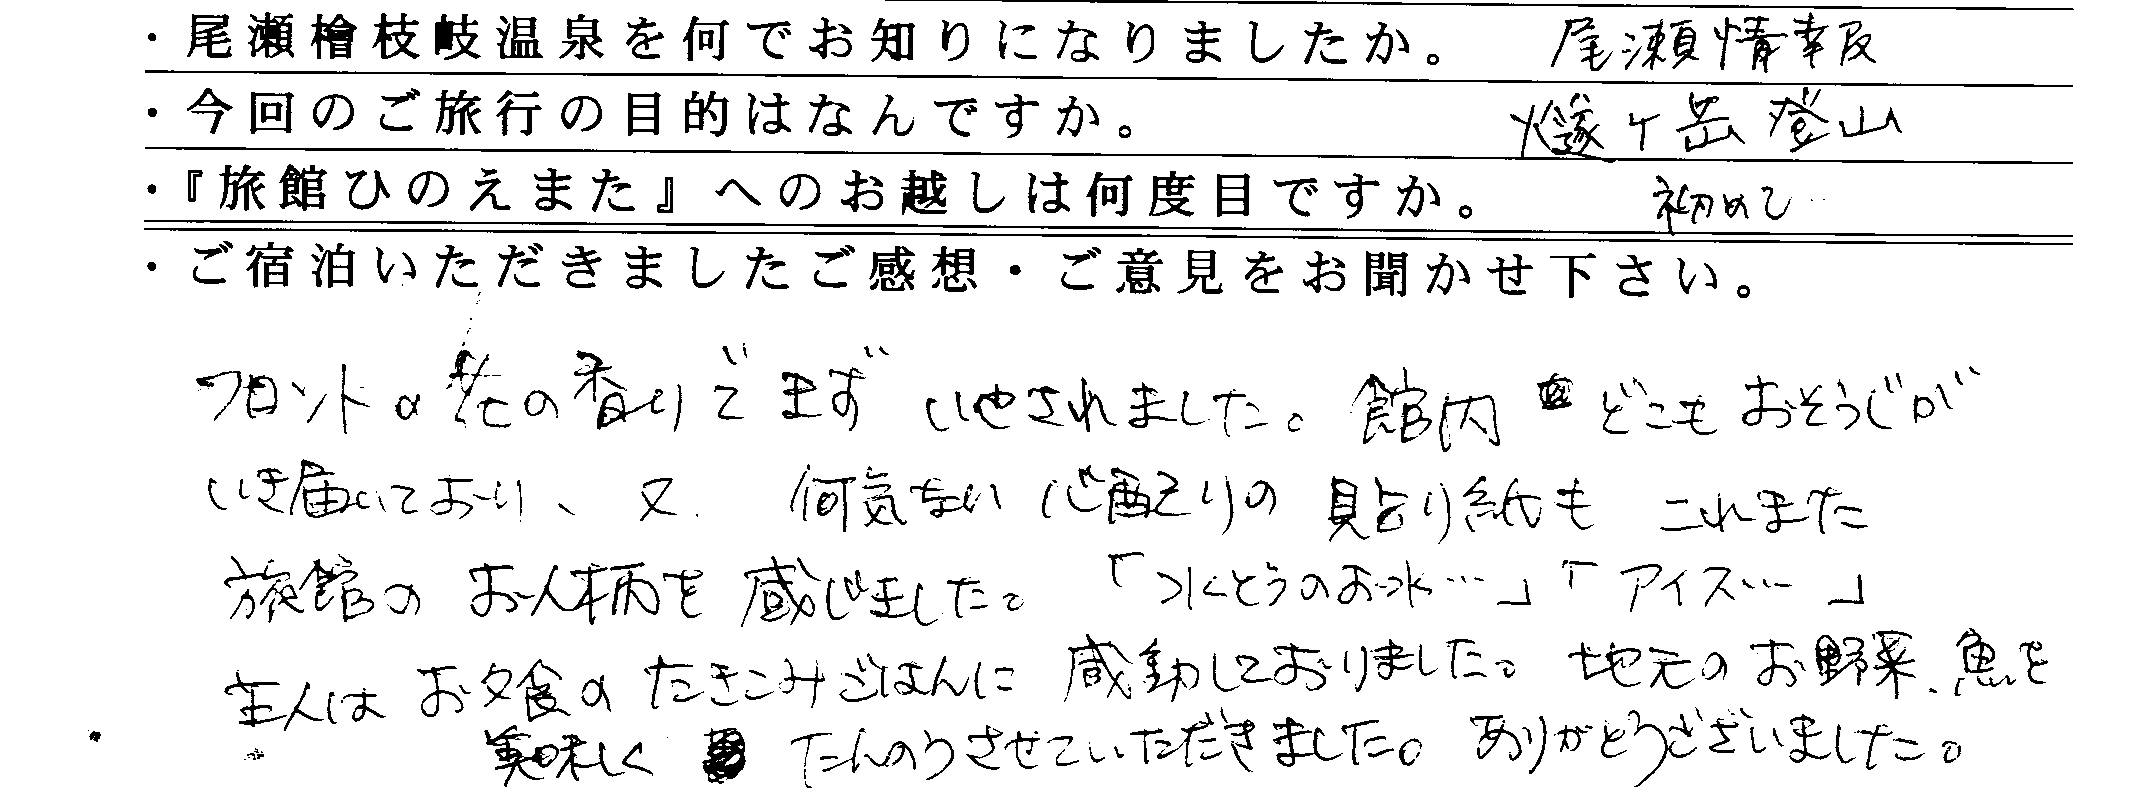 ・尾瀬檜枝岐温泉を何でお知りになりましたか。 尾瀬情報
・今回のご旅行の目的はなんですか。 燧ヶ岳登山
・『旅館ひのえまた』へのお越しは何度目ですか。 初めて
・ご宿泊いただきましたご感想・ご意見をお聞かせ下さい。
フロントの花の香りでまず いやされました。館内 どこもおそうじが
いき届いており、又 何気ない心配りの貼り紙も これまた
旅館の お人柄を感じました。「水とうのお水…」「アイス…」
主人は お夕食の たきこみごはんに 感動しておりました。地元のお野菜、魚を
美味しく たんのうさせていただきました。ありがとうございました。